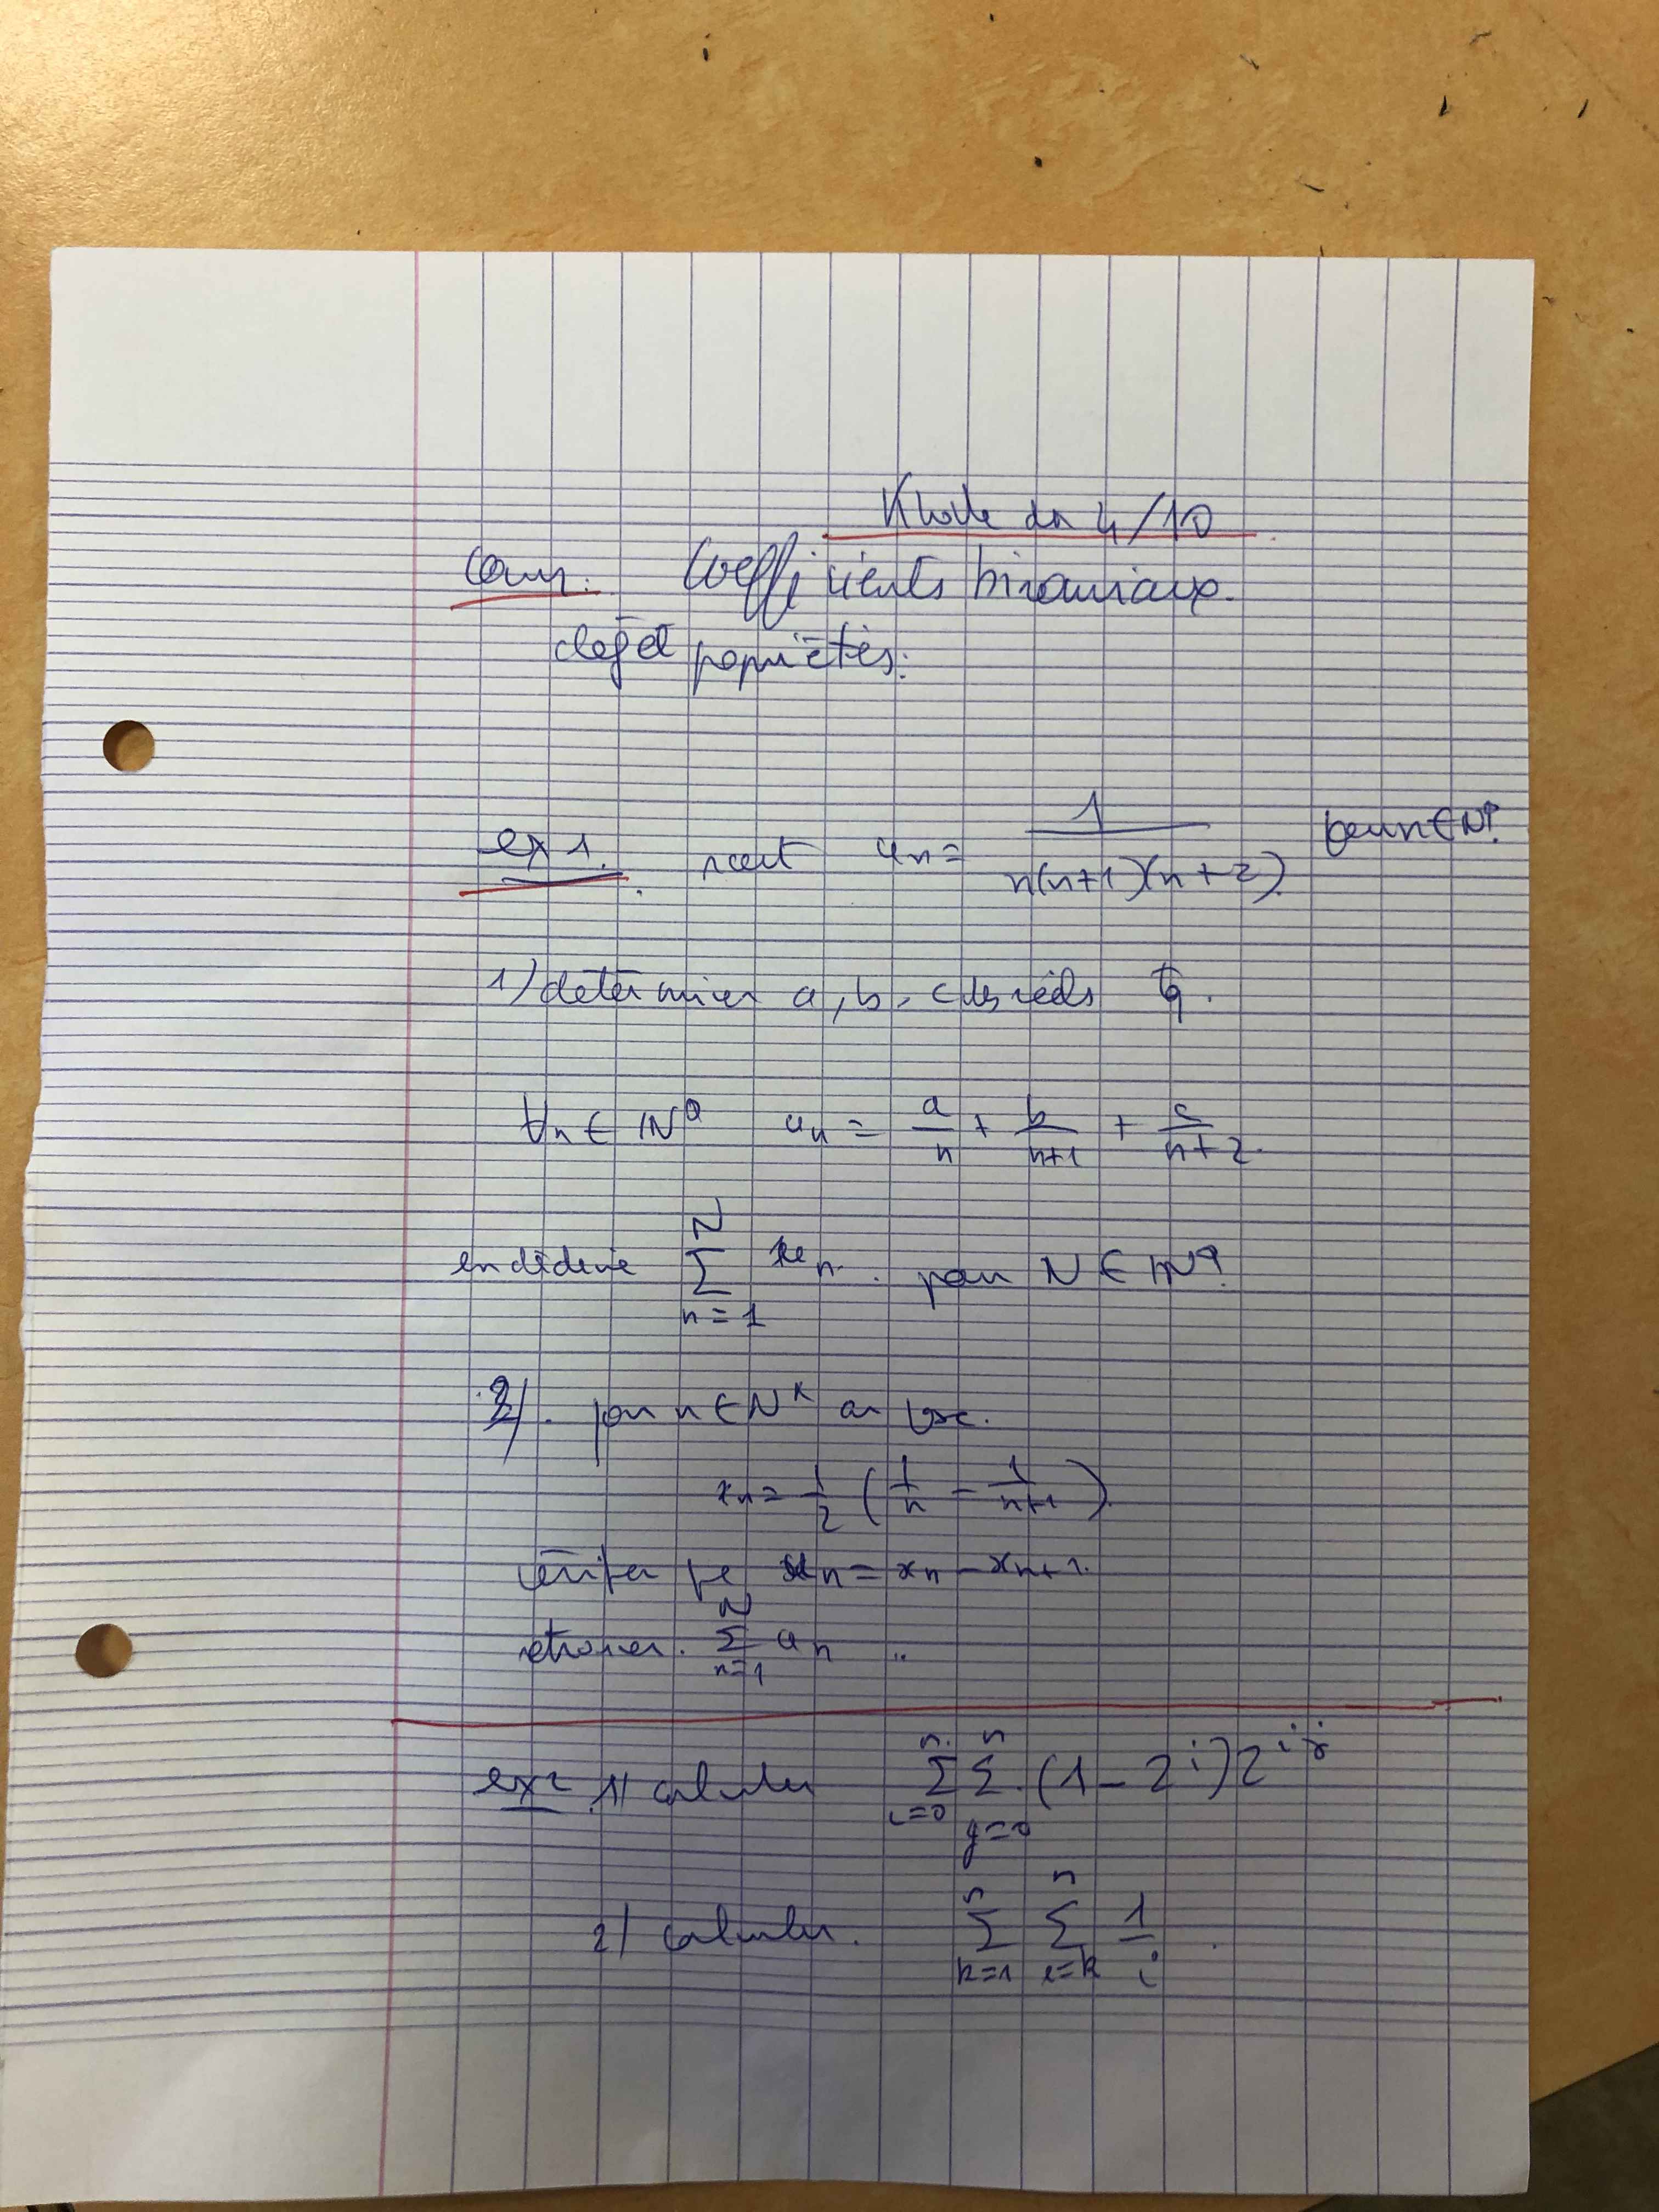 Kholle du 4/10
Cours: Coefficients binomiaux.
def et propriétés:
ex 1. soit uₙ = 1/(n(n+1)(n+2)) pour n ∈ ℕ*
1) déterminer a, b, c des réels tq.
∀n ∈ ℕ* uₙ = a/n + b/(n+1) + c/(n+2).
en déduire ∑_{n=1}^{N} uₙ. pour N ∈ ℕ*
2). pour n ∈ ℕ* on pose.
xₙ = 1/2 (1/n - 1/(n+1)).
vérifier que uₙ = xₙ - xₙ₊₁.
retrouver. ∑_{n=1}^{N} uₙ ..
ex 2 1) calculer ∑_{i=0}^{n} ∑_{j=0}^{n} (1-2^i) 2^{ij}
2) calculer. ∑_{k=1}^{n} ∑_{i=k}^{n} 1/i.